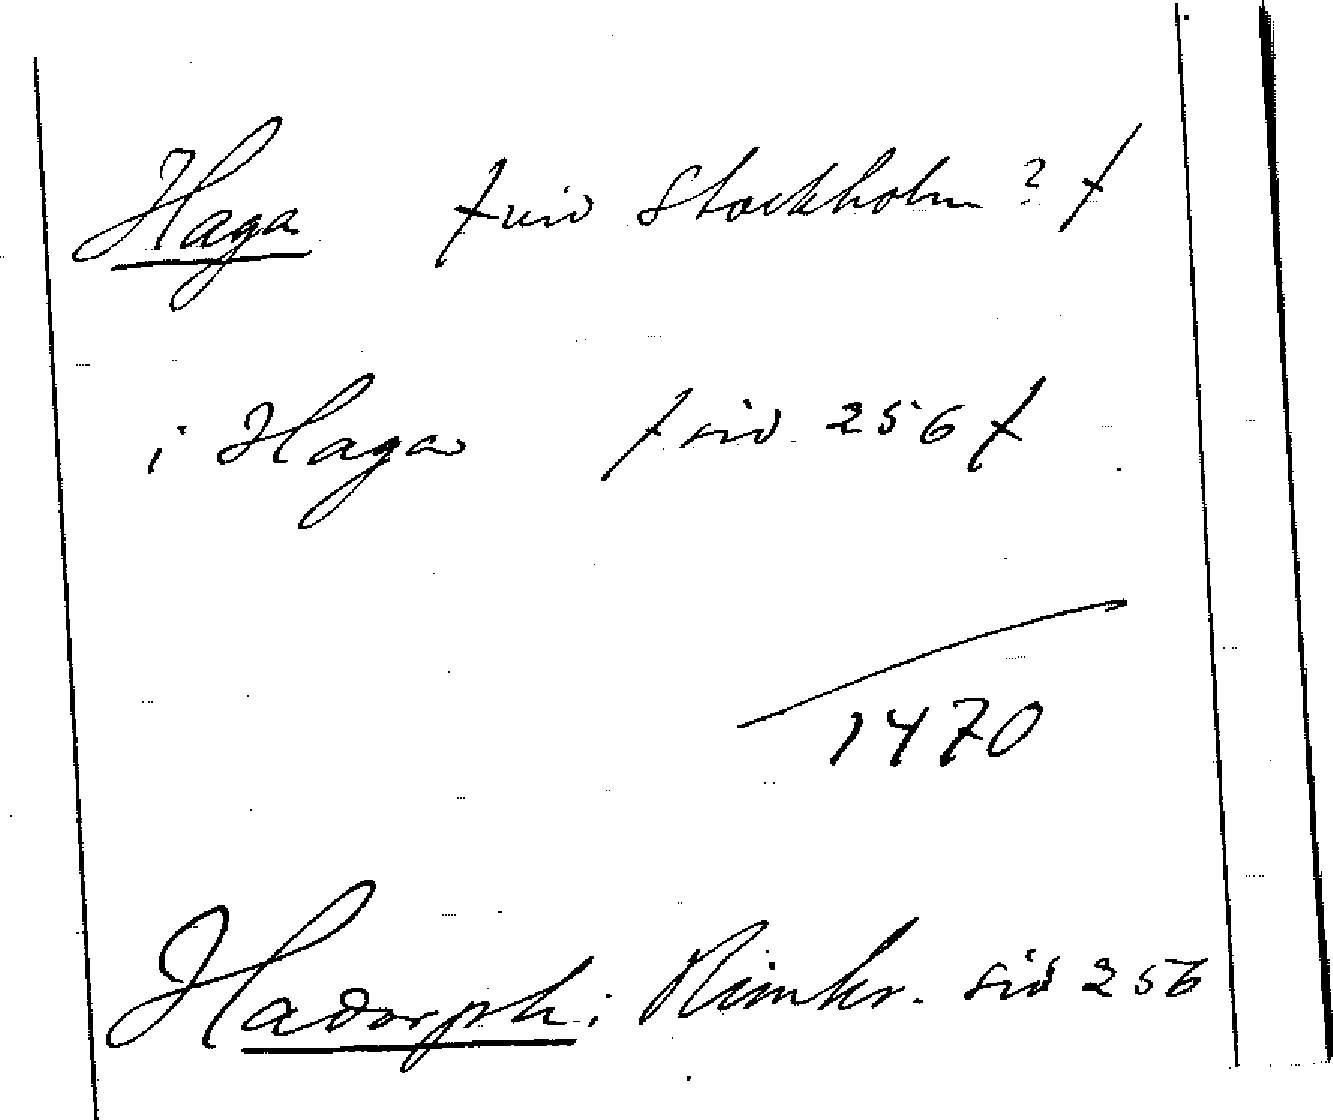 Haga (vid Stockholm?)
i Haga (sid 256)
1470
Hadorph: Rimkr. sid 256